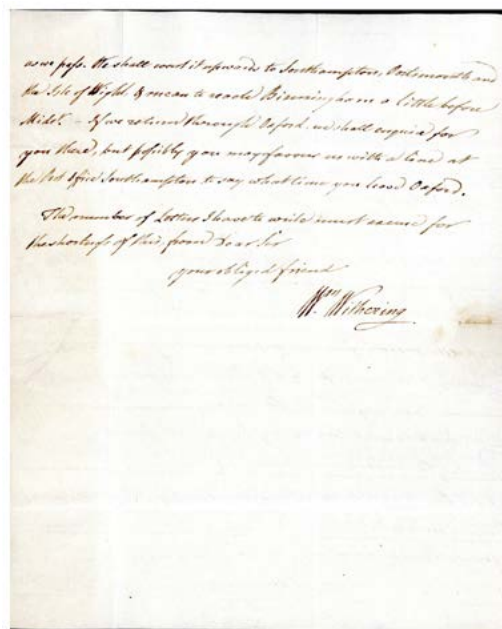 as we pass. We shall coast it upwards to Southampton, Portsmouth and
the Isle of Wight & mean to reach Birmingham a little before
Midsr. – If we return through Oxford we shall enquire for
you there, but possibly you may favour us with a Line at
the Post Office Southampton to say what time you leave Oxford.
The number of Letters I have to write must excuse for
the shortness of this, from Dear Sir
your obliged friend
Wm Withering